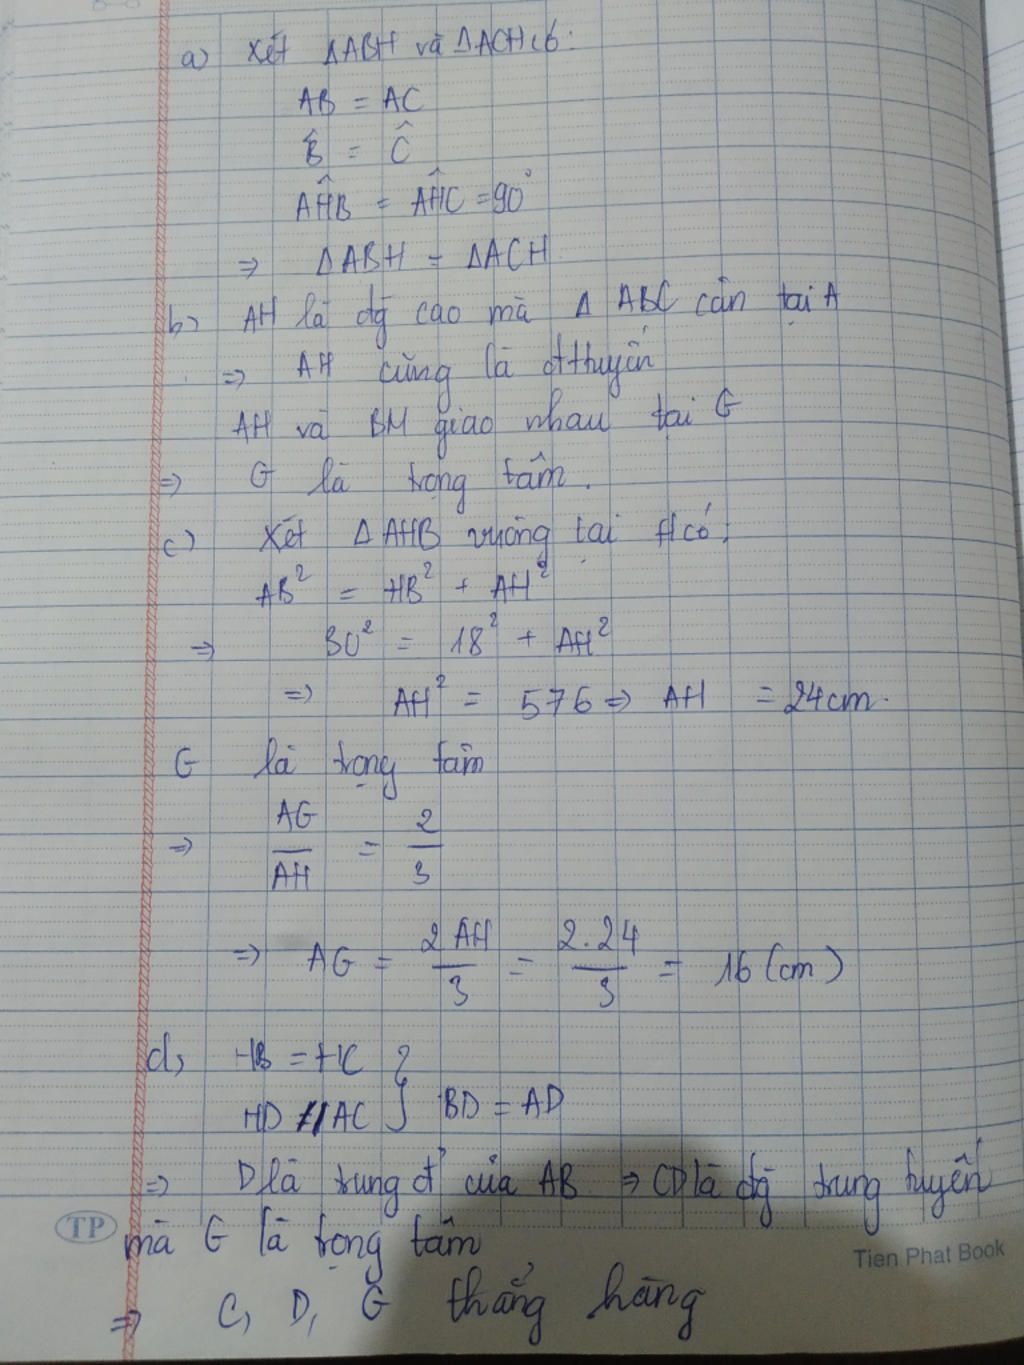 a) Xét ΔABH và ΔACH có:
AB = AC
B̂ = Ĉ
AĤB = AĤC = 90°
⇒ ΔABH = ΔACH
b) AH là đg cao mà Δ ABC cân tại A
⇒ AH cũng là đttuyến
AH và BM giao nhau tại G
⇒ G là trọng tâm.
c) Xét ΔAHB vuông tại H có:
AB² = HB² + AH²
⇒ 30² = 18² + AH²
⇒ AH² = 576 ⇒ AH = 24cm.
G là trọng tâm
⇒ AG/AH = 2/3
⇒ AG = 2AH/3 = 2.24/3 = 16 (cm)
d, HB = HC
HD // AC } BD = AD
⇒ D là trung đ' của AB ⇒ CD là đg trung tuyến
mà G là trọng tâm
⇒ C, D, G thẳng hàng
TP
Tien Phat Book